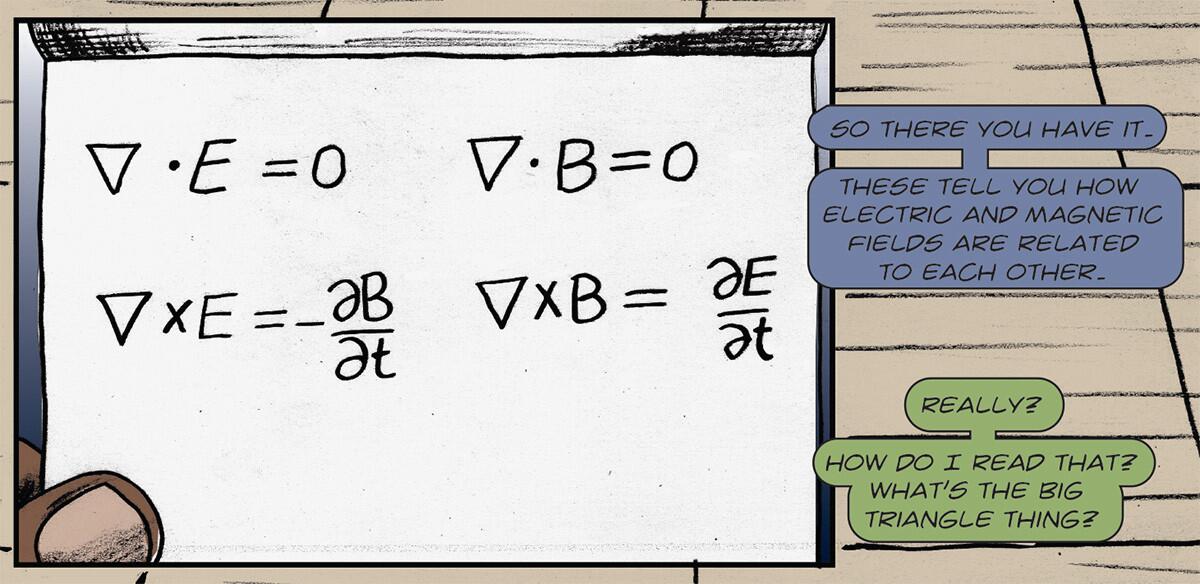 ∇ · E = 0
∇ · B = 0
∇ × E = - ∂B/∂t
∇ × B = ∂E/∂t
SO THERE YOU HAVE IT.
THESE TELL YOU HOW
ELECTRIC AND MAGNETIC
FIELDS ARE RELATED
TO EACH OTHER.
REALLY?
HOW DO I READ THAT?
WHAT'S THE BIG
TRIANGLE THING?